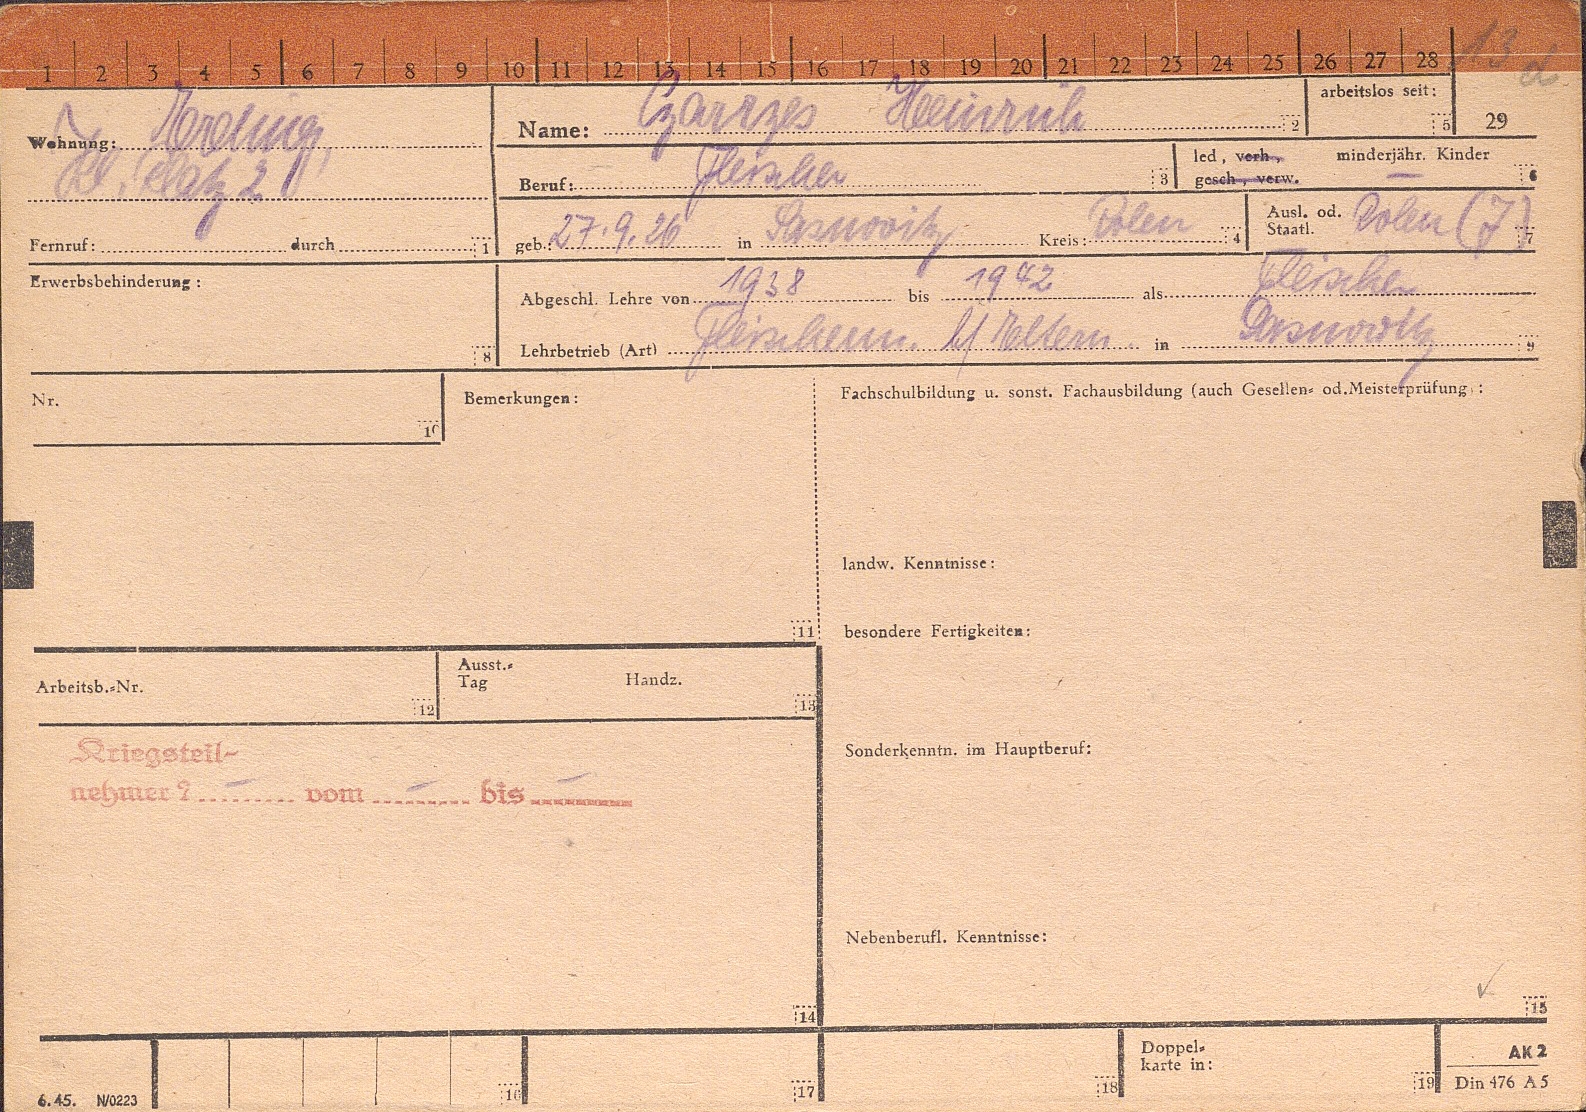 1 2 3 4 5 6 7 8 9 10 11 12 13 14 15 16 17 18 19 20 21 22 23 24 25 26 27 28 13
Wohnung: Erding,
Platz 2
Fernruf: durch 1
Name: Czarzes Heinrich 2
arbeitslos seit: 5
29
Beruf: Fleischer 3
led., verh., minderjähr. Kinder –
gesch., verw. 6
geb.: 27.9.26 in Sosnovitz Kreis: Polen 4
Ausl. od. Staatl. Polen (J) 7
Erwerbsbehinderung: 8
Abgeschl. Lehre von 1938 bis 1942 als Fleischer
Lehrbetrieb (Art) b/ Eltern in Sosnowitz 9
Nr. 10
Bemerkungen: 11
Fachschulbildung u. sonst. Fachausbildung (auch Gesellen- od. Meisterprüfung):
landw. Kenntnisse:
besondere Fertigkeiten:
Arbeitsb.-Nr. 12
Ausst.-
Tag Handz. 13
Kriegsteil-
nehmer? – vom – bis –
14
Sonderkenntn. im Hauptberuf:
Nebenberufl. Kenntnisse:
15
16 17 18
Doppel-
karte in: 19
AK 2
Din 476 A 5
6.45. N/0223